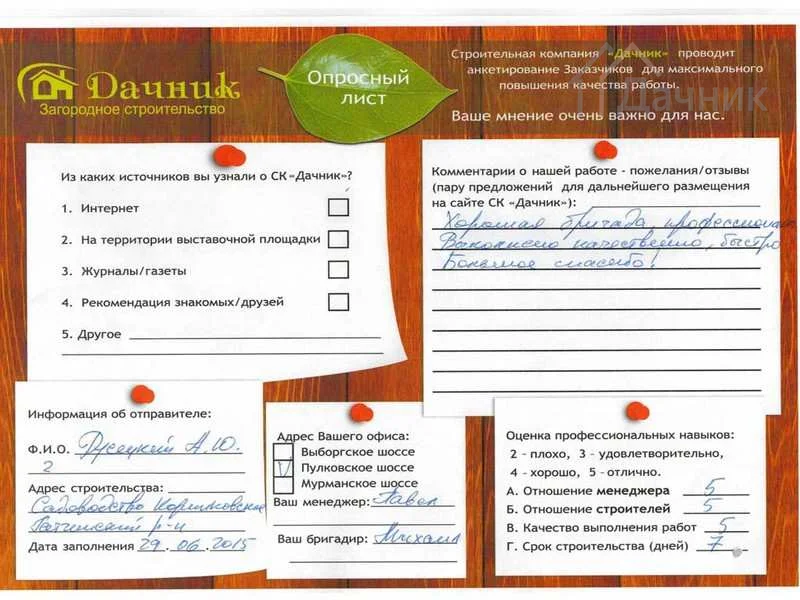 Дачник
Загородное строительство
Опросный
лист
Строительная компания «Дачник» проводит
анкетирование Заказчиков для максимального
повышения качества работы.
Дачник
Ваше мнение очень важно для нас.
Из каких источников вы узнали о СК «Дачник»?
1. Интернет
2. На территории выставочной площадки
3. Журналы/газеты
4. Рекомендация знакомых/друзей
5. Другое
Комментарии о нашей работе - пожелания/отзывы
(пару предложений для дальнейшего размещения
на сайте СК «Дачник»):
Хорошая бригада, профессионал
Выполнено качественно, быстро
Большое спасибо!
Информация об отправителе:
Ф.И.О. А.Ю.
2
Адрес строительства:
Садоводство
Гатчинский р-н
Дата заполнения 29.06.2015
Адрес Вашего офиса:
Выборгское шоссе
Пулковское шоссе
Мурманское шоссе
Ваш менеджер: Павел
Ваш бригадир: Михаил
Оценка профессиональных навыков:
2 - плохо, 3 - удовлетворительно,
4 - хорошо, 5 - отлично.
А. Отношение менеджера 5
Б. Отношение строителей 5
В. Качество выполнения работ 5
Г. Срок строительства (дней) 7